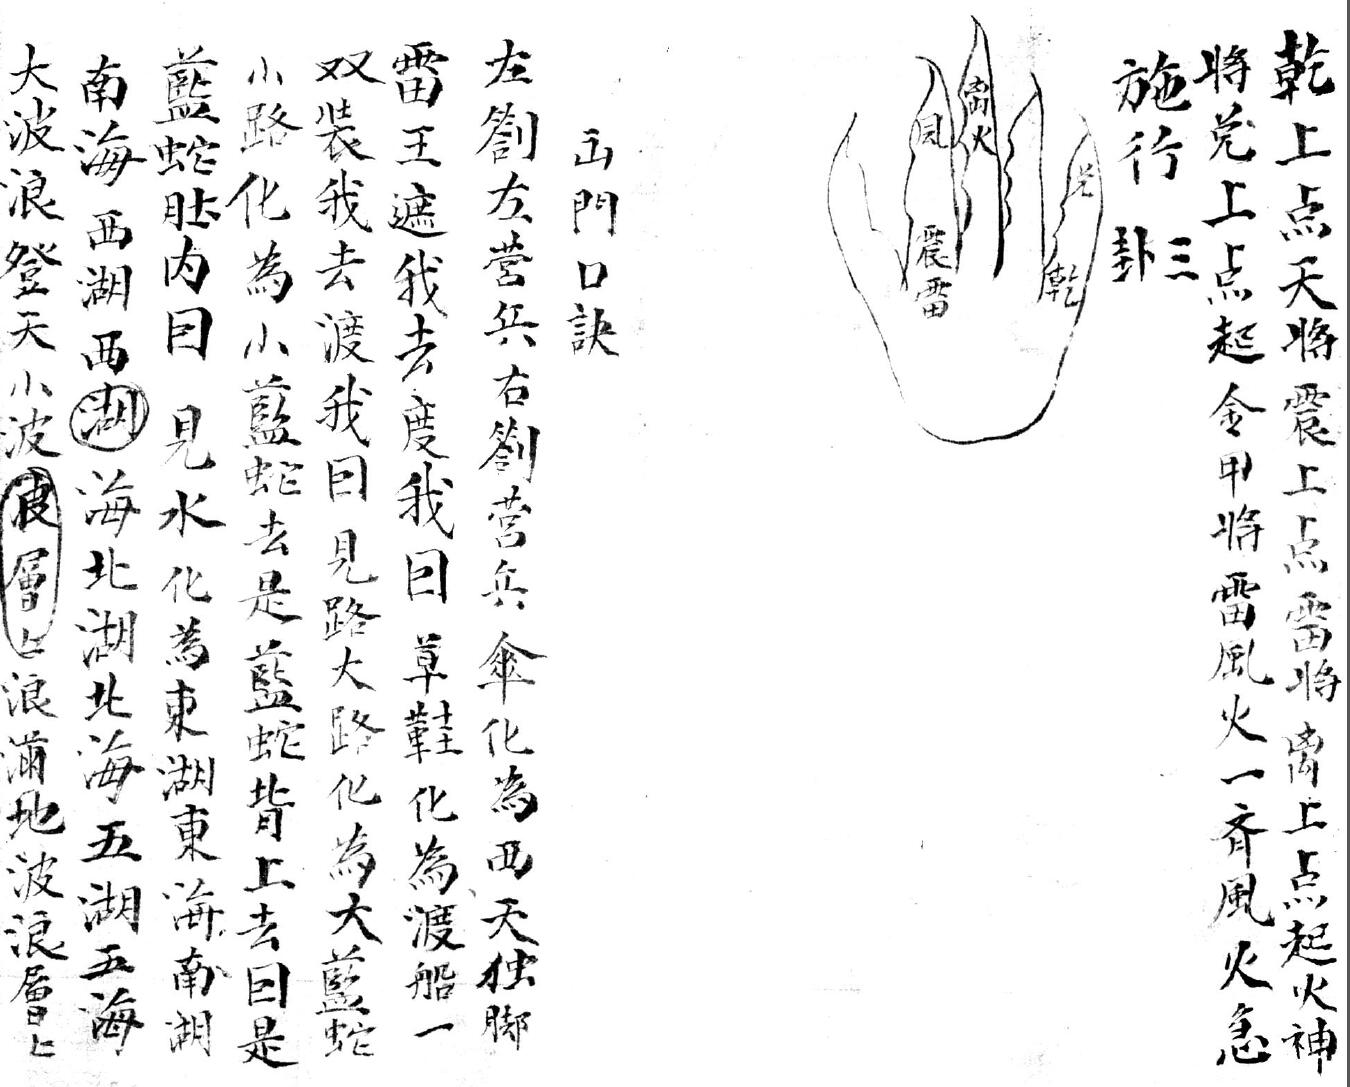 乾上点天将震上点雷将离上点起火神
将兑上点起金甲将雷風火一斉風火急
施行
三卦
离火
風
震雷
兑
乾
出門口訣
左劄左营兵右劄营兵傘化為西天独脚
雷王遮我去度我囬草鞋化為渡船一
双装我去渡我囬見路大路化為大藍蛇
小路化為小藍蛇去是藍蛇背上去囬是
藍蛇肚内囬見水化為東湖東海南湖
南海西湖西湖海北湖北海五湖五海
大波浪登天小波波層上浪滿地波浪層上